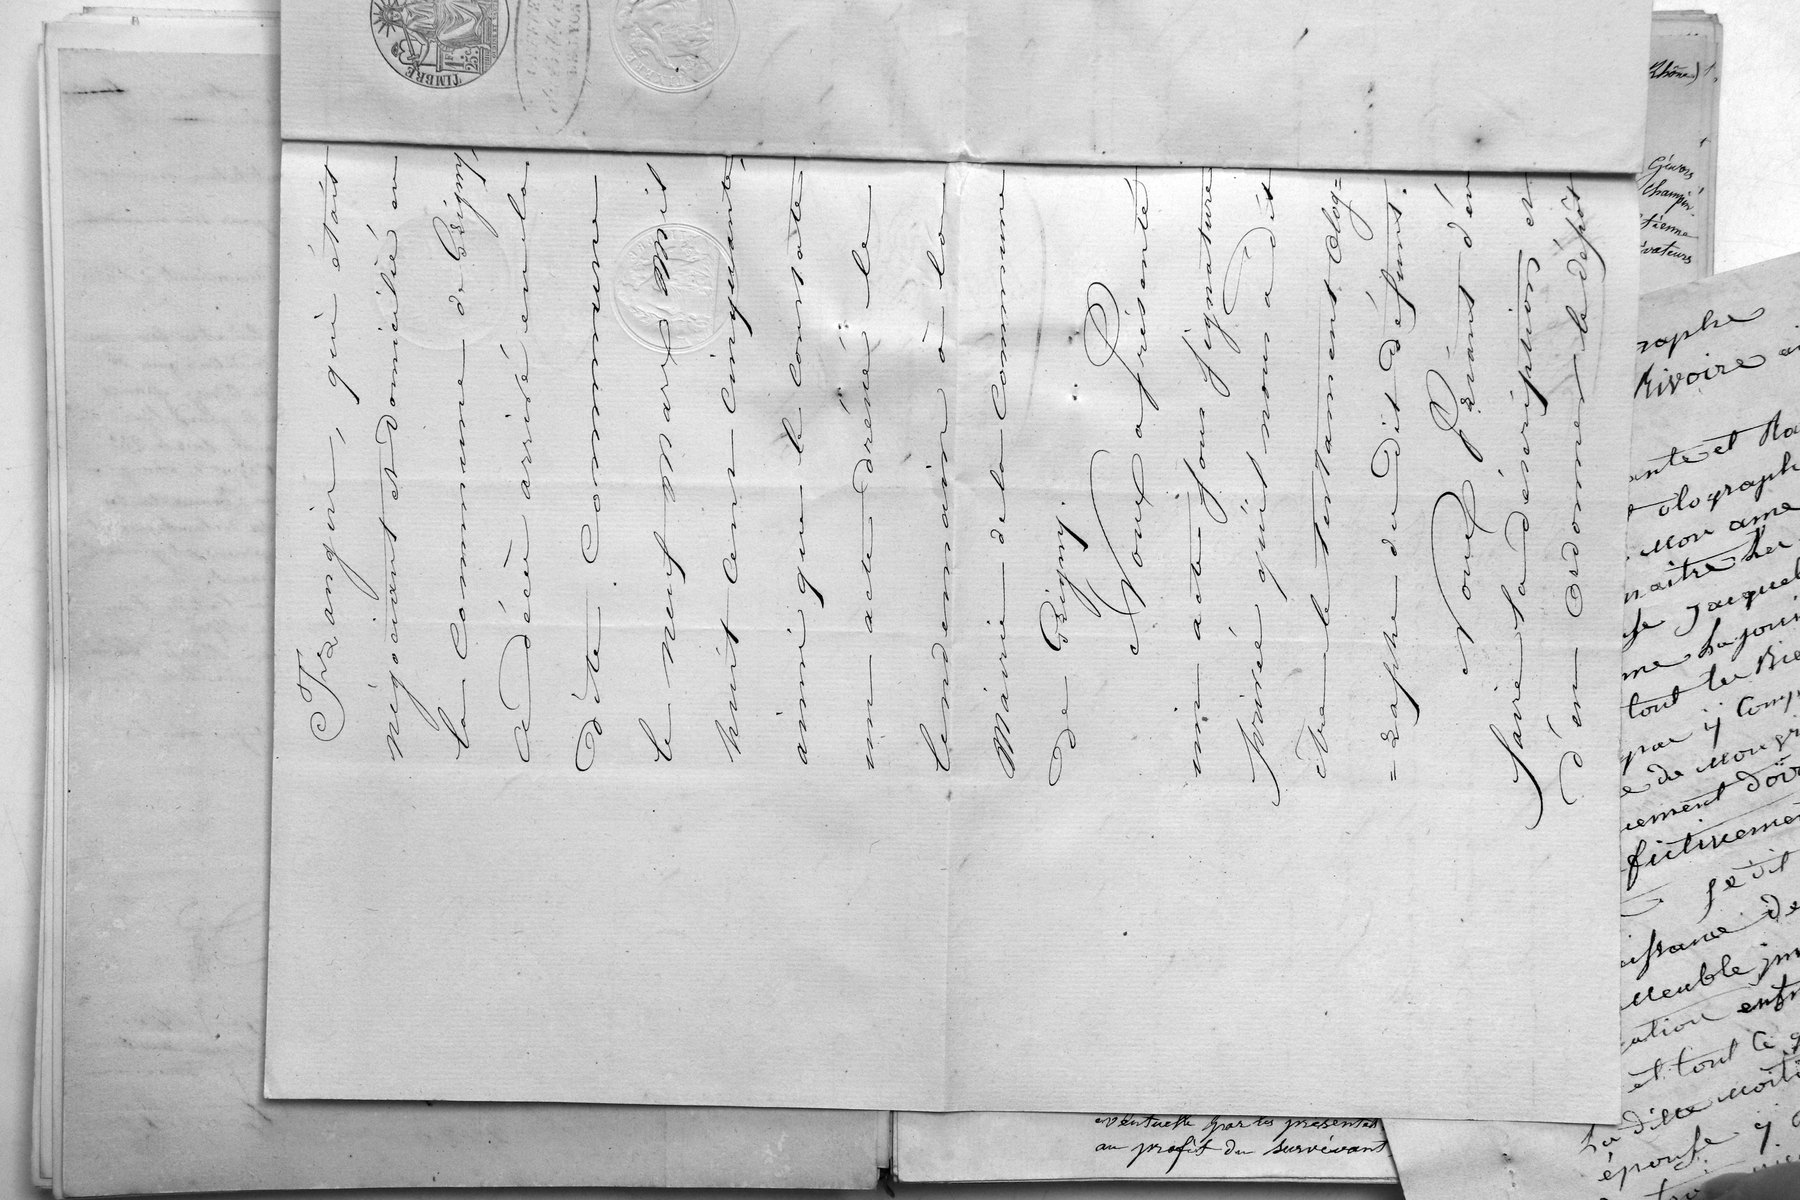 TIMBRE
1 F
25 C.
Frangin, qui était
négociant et domicilié en
la commune de Grigny,
a décès arrivé en la
dite Commune
le neuf mars Mil
huit cent cinquante
ainsi que le constate
un acte dressé le
lendemain à la
Mairie de la Commune
de Grigny.
Nous a présenté
un acte sous signature
privée qu'il nous a dit
être le testament olog=
=raphe du dit défunt.
Nous Requérant d'en
faire la description et
d'en ordonner le dépôt
Rhône)
Givors
Champin
tienne
rvateurs
raphe
Rivoire
ante et
olographe
mon ame
Jaquel
la joui
tout les Bie
par ij Comp
e de Mon
vement
fictivemen
se dit
issance de
Meuble
cation entr
et tout ce
la ditte moiti
épouse ij
éventuelle par les présentes
au profit du survivant